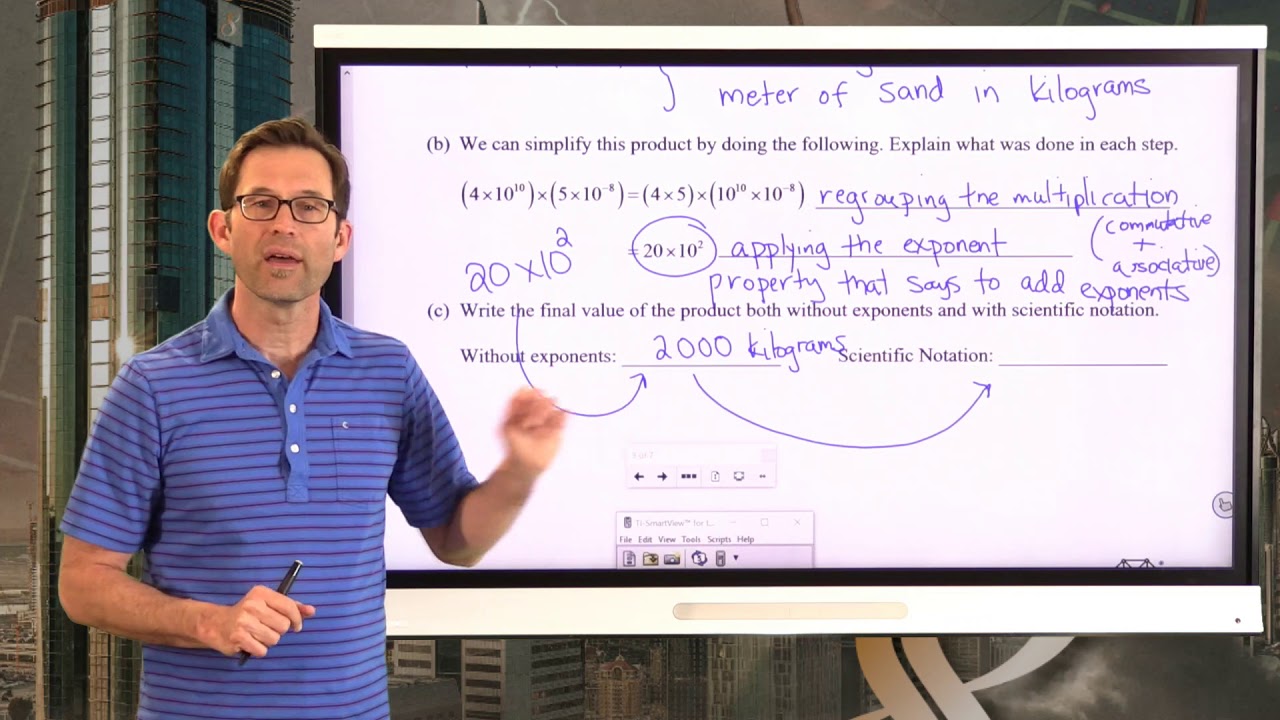 meter of sand in kilograms
(b) We can simplify this product by doing the following. Explain what was done in each step.
(4×10¹⁰)×(5×10⁻⁸)=(4×5)×(10¹⁰×10⁻⁸) regrouping the multiplication
(commutative
+
associative)
20×10²
=20×10² applying the exponent
property that says to add exponents
(c) Write the final value of the product both without exponents and with scientific notation.
Without exponents: 2000 kilograms Scientific Notation:
5 of 7
TI-SmartView™ for t...
File Edit View Tools Scripts Help